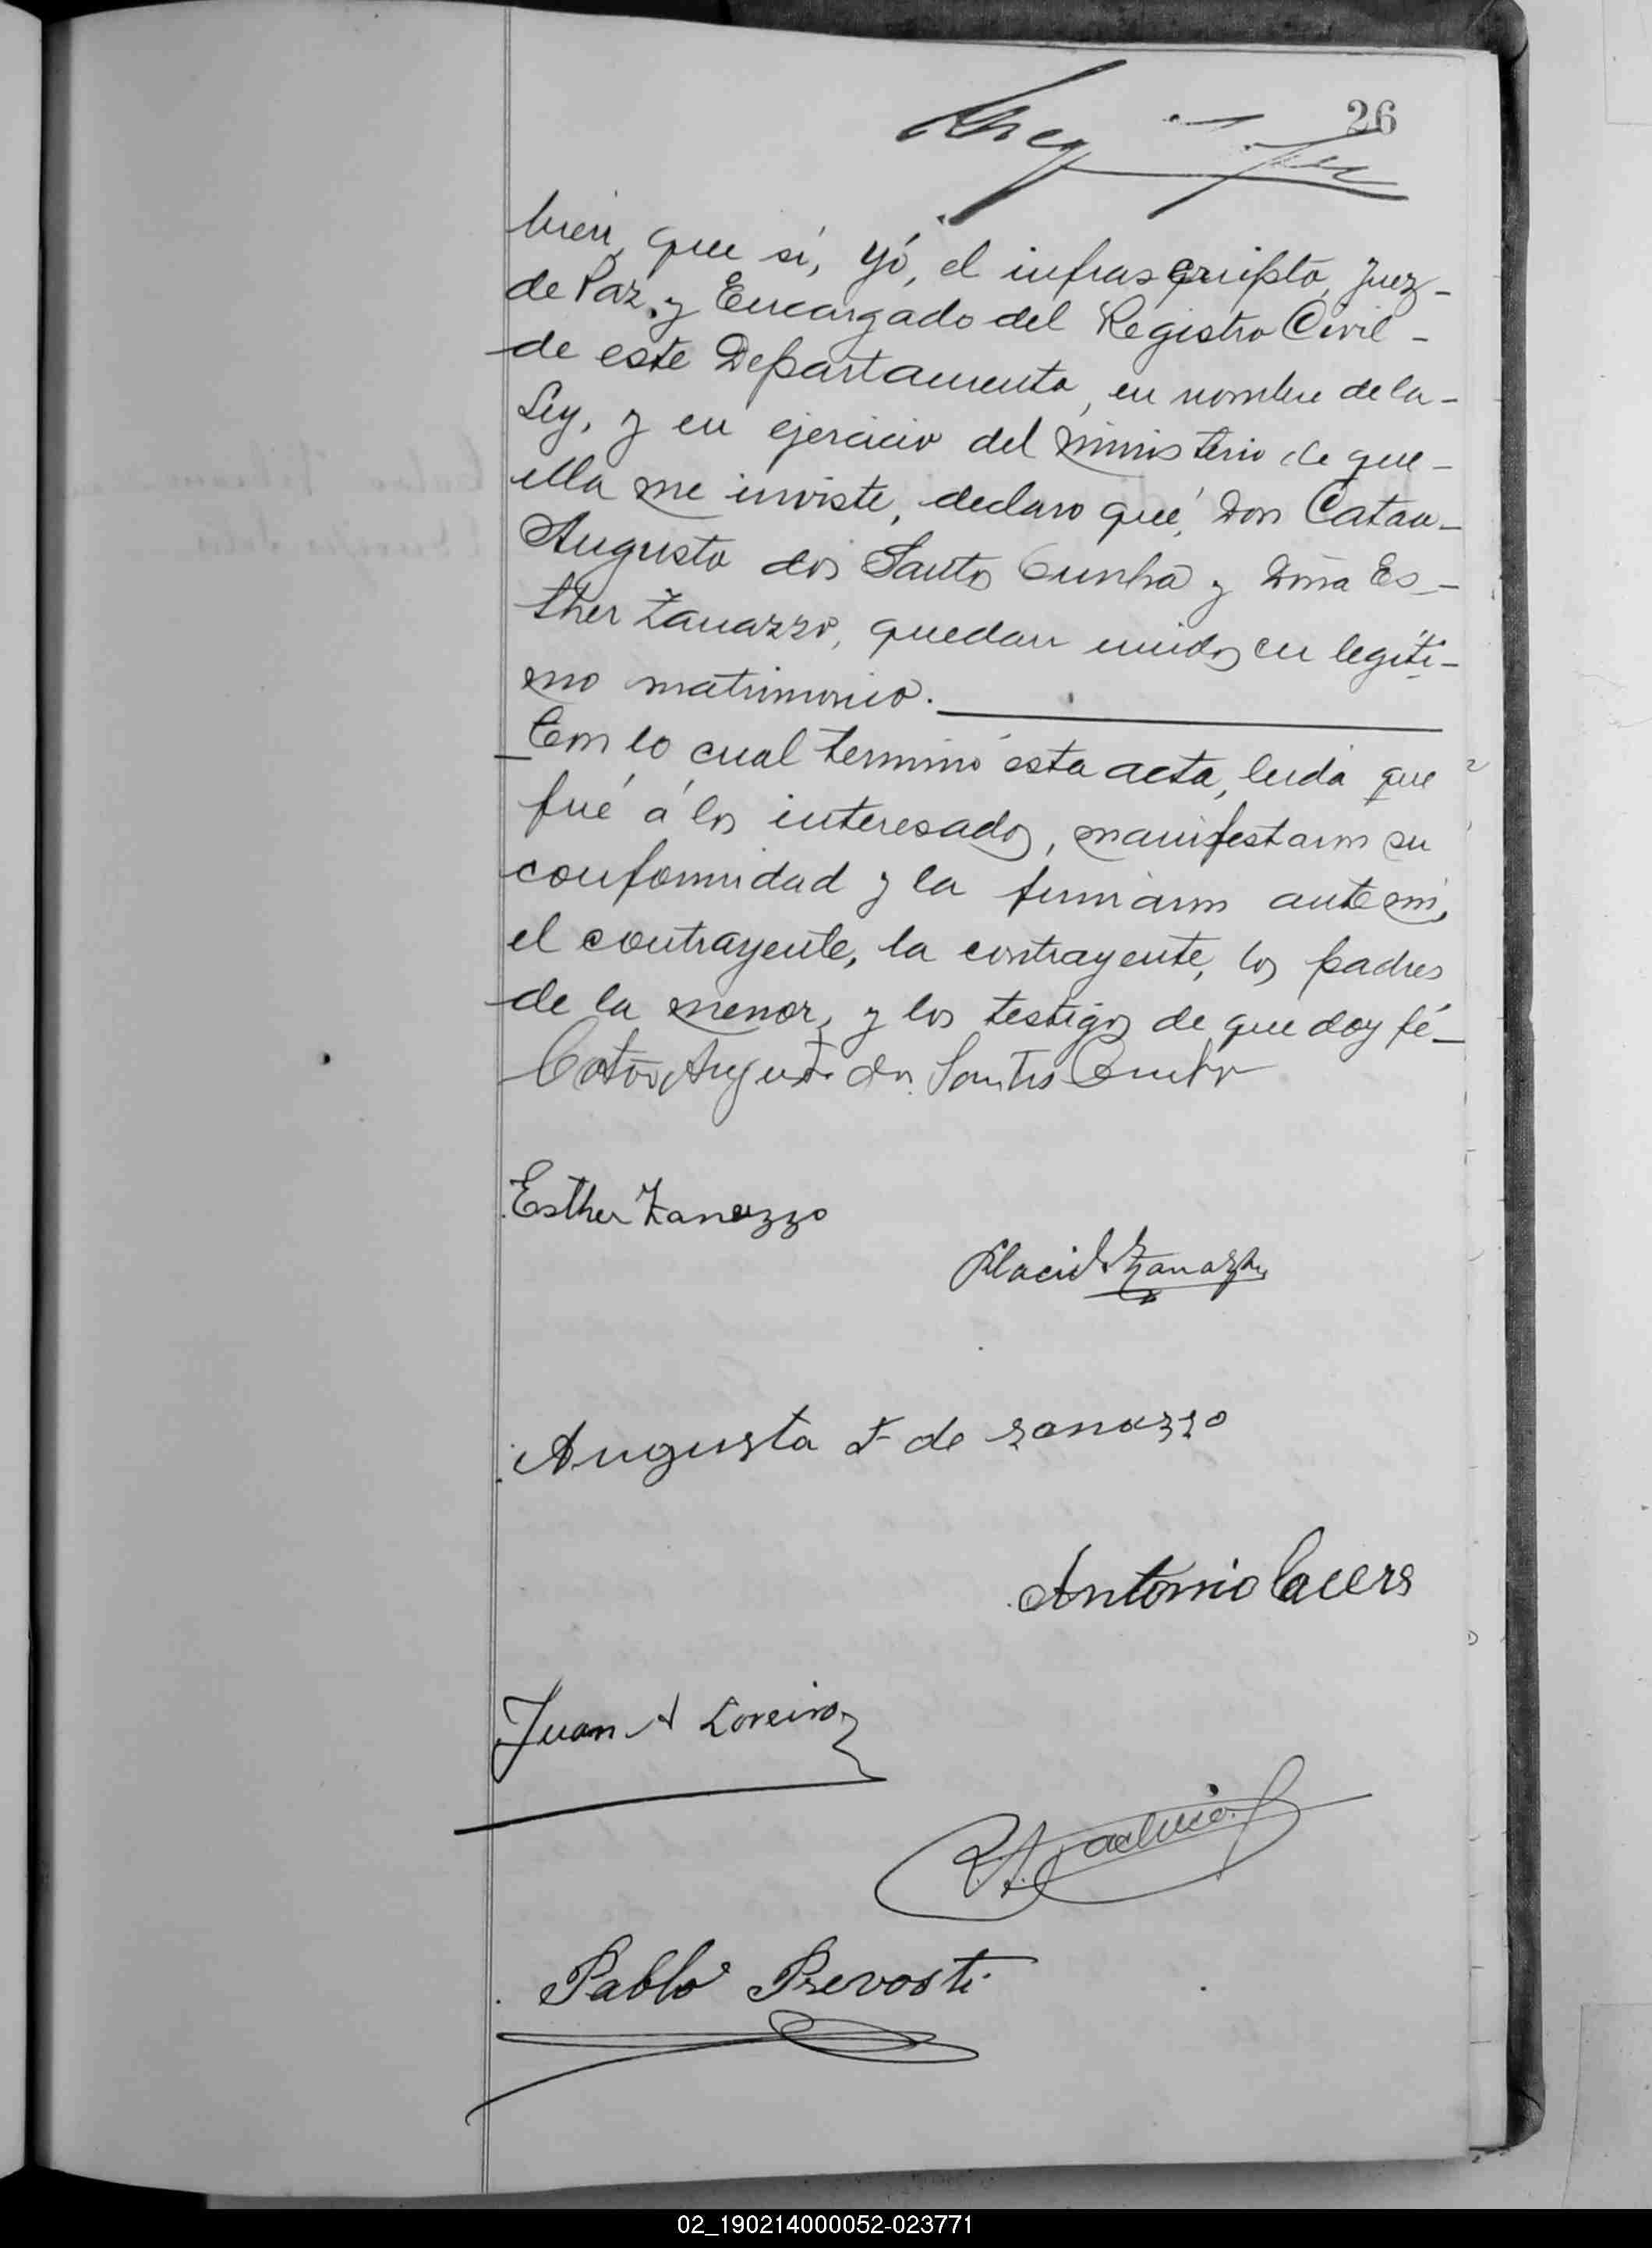 26
bien, que sí, Yó, el infrascripto, Juez-
de Paz, y Encargado del Registro Civil-
de este Departamento, en nombre de la-
Ley, y en ejercicio del ministerio de que-
ella me inviste, declaro qué, Don Catau-
Augusto dos Santos Cunha y Doña Es-
ther Zanazzo, quedan unidos en legíti-
mo matrimonio.
Con lo cual terminó esta acta, leida que
fué á los interesados, manifestaron su
conformidad y la firmaron ante mí,
el contrayente, la contrayente, los padres
de la menor, y los testigos de que doy fé-
Catão Augusto dos Santos Cunha
Esther Zanazzo
Placido Zanazzo
Augusta F de Zanazzo
Antonio
Juan A Loreiro
Pablo Prevosti
02_190214000052-023771